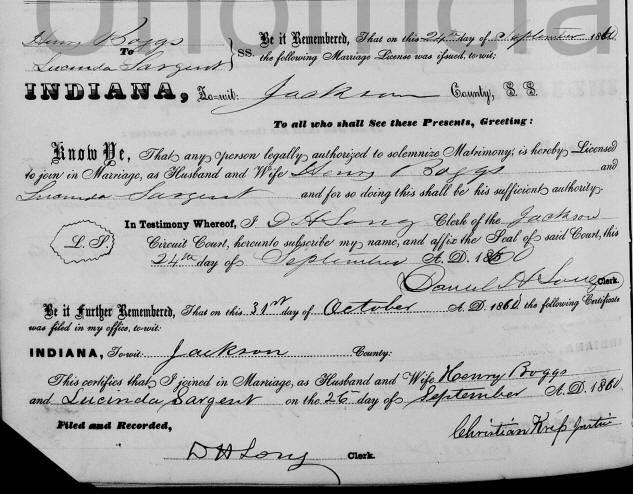 unofficial
Henry Boggs
To
Lucinda Sargent
SS. Be it Remembered, That on this 24th day of September 1860
the following Marriage License was issued, to wit:
INDIANA, To-wit: Jackson County, S. S.
To all who shall See these Presents, Greeting:
Know Ye, That any person legally authorized to solemnize Matrimony, is hereby Licensed
to join in Marriage, as Husband and Wife Henry Boggs and
Lucinda Sargent and for so doing this shall be his sufficient authority.
In Testimony Whereof, I D H Long Clerk of the Jackson
L. S. Circuit Court, hereunto subscribe my name, and affix the Seal of said Court, this
24th day of September A. D. 1860
Daniel H Long Clerk.
Be it Further Remembered, That on this 31st day of October A. D. 1860 the following Certificate
was filed in my office, to-wit:
INDIANA, To-wit: Jackson County:
This certifies that I joined in Marriage, as Husband and Wife Henry Boggs
and Lucinda Sargent on the 26 day of September A. D. 1860
Christian Justice
Filed and Recorded,
D H Long Clerk.